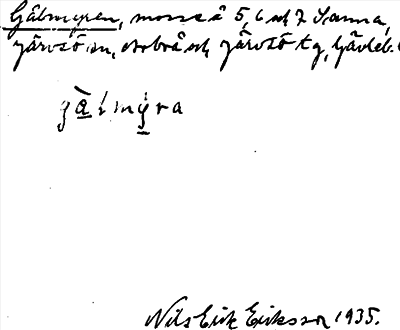 Gälmyren, mosse å 5, 6 och 7 Sanna,
Järvsö sn, Arbrå och Järvsö tg, Gävleb.
gälmyra
Nils Erik Eriksson 1935.